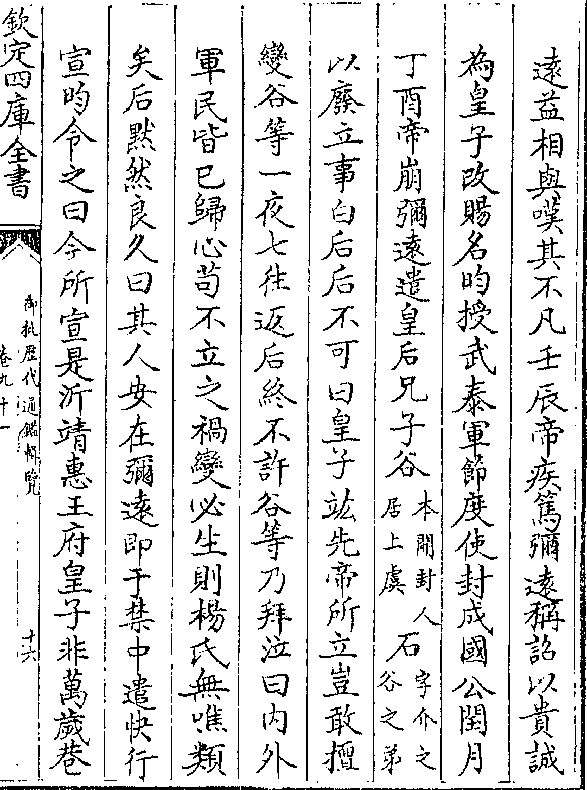 遠益相與嘆其不凡壬辰帝疾篤彌遠稱詔以貴誠
為皇子改賜名昀授武泰軍節度使封成國公閏月
丁酉帝崩彌遠遣皇后兄子谷本開封人居上虞石字介之谷之弟
以廢立事白后后不可曰皇子竑先帝所立豈敢擅
變谷等一夜七往返后終不許谷等乃拜泣曰内外
軍民皆已歸心苟不立之禍變必生則楊氏無噍類
矣后黙然良久曰其人安在彌遠即于禁中遣快行
宣昀令之曰今所宣是沂靖惠王府皇子非萬歲巷
欽定四庫全書
御批歷代通鑑輯覽
卷九十一
十六